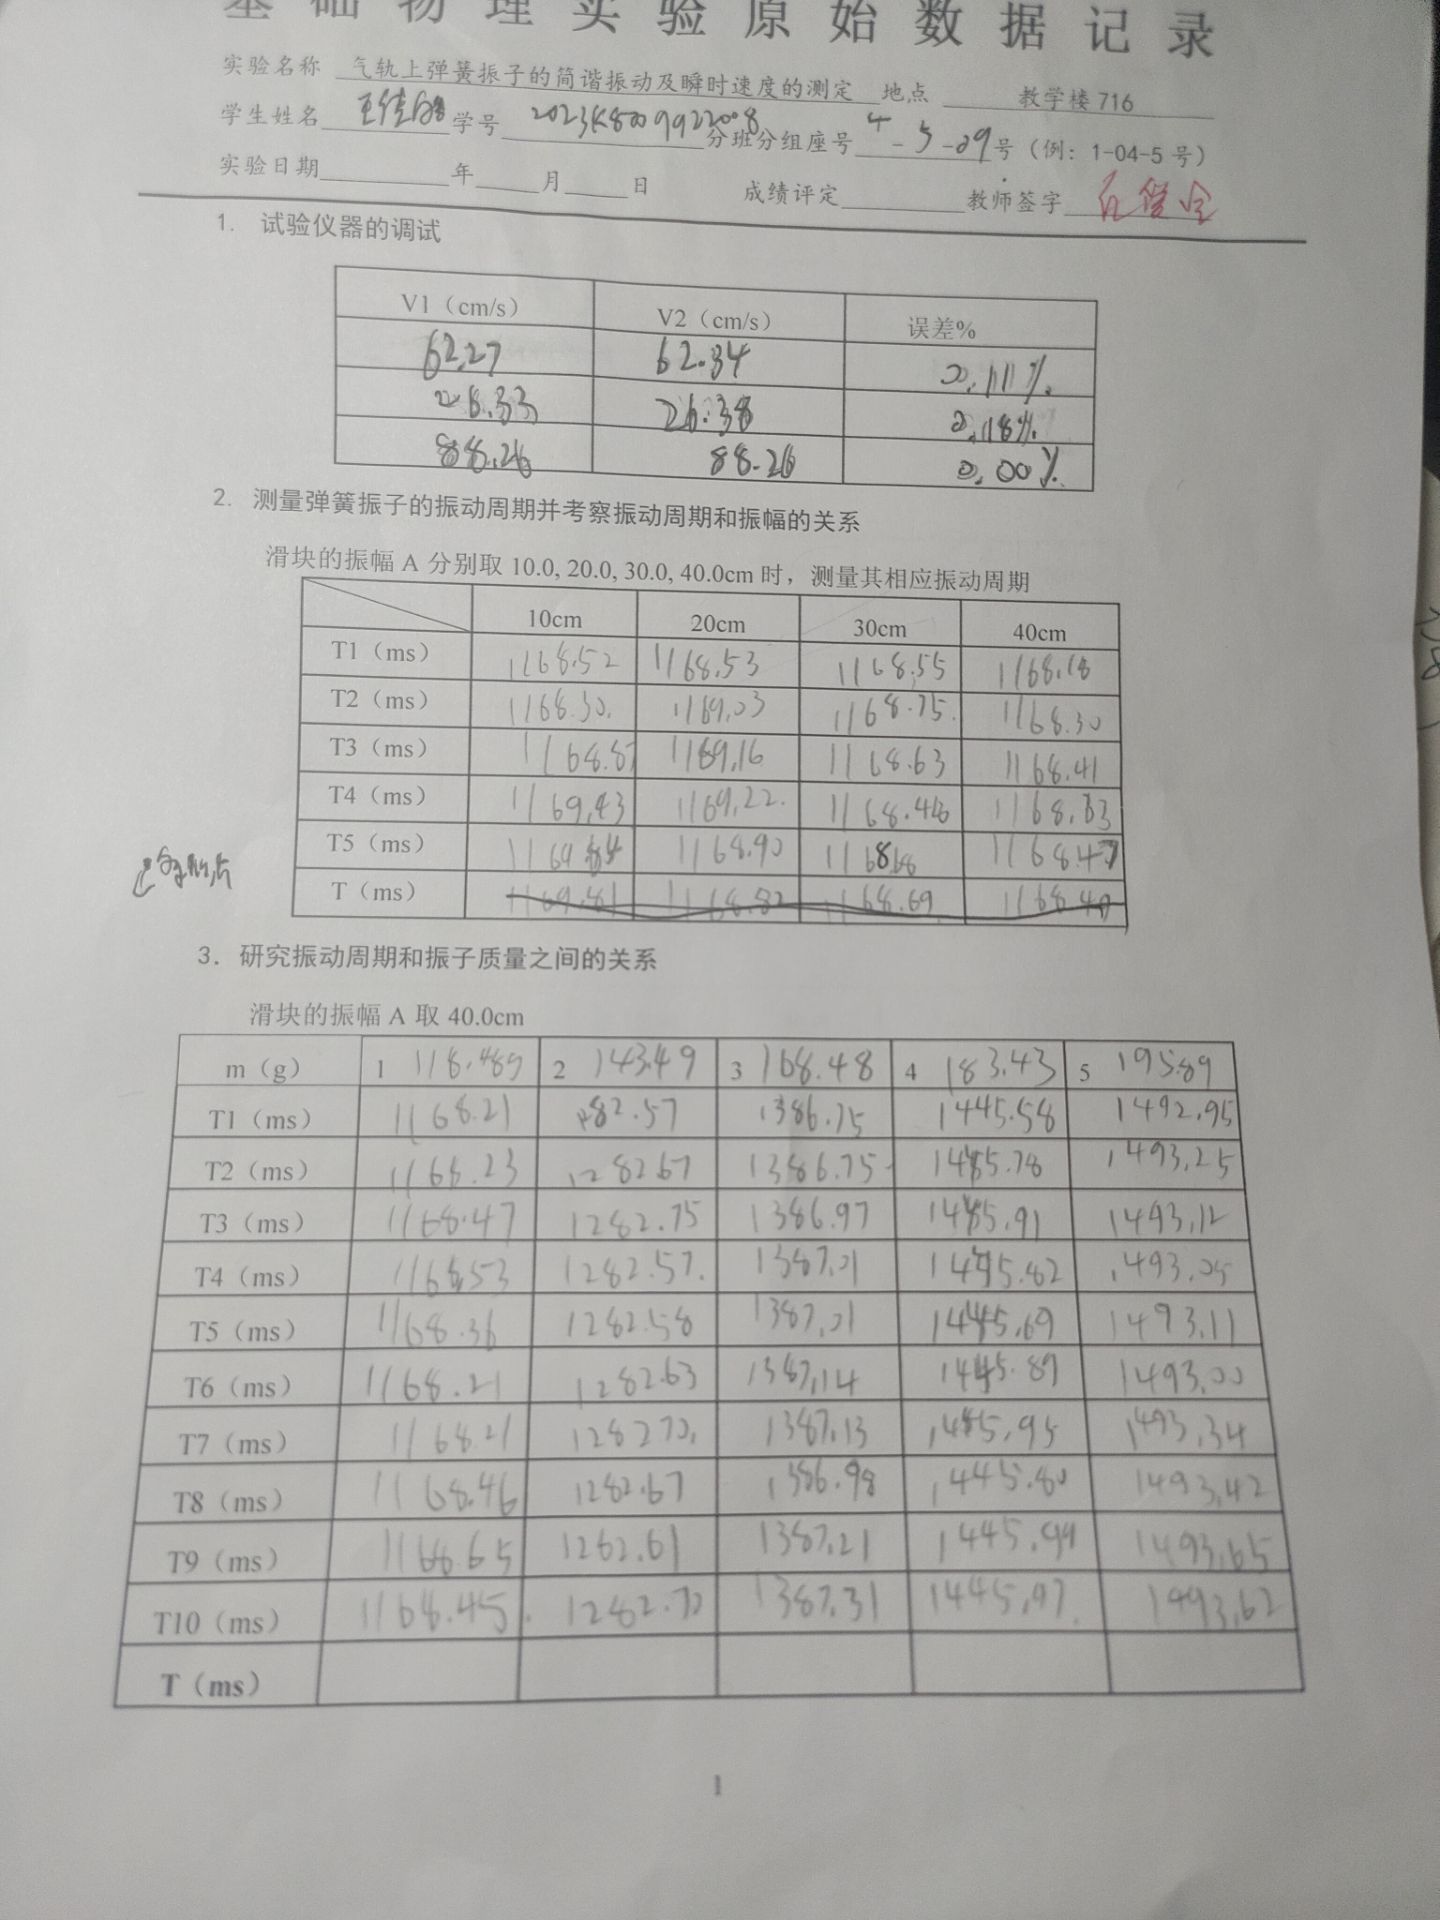 基础物理实验原始数据记录
实验名称 气轨上弹簧振子的简谐振动及瞬时速度的测定 地点 教学楼 716
学生姓名 学号 2023K8009922008 分班分组座号 4-5-09号（例：1-04-5 号）
实验日期 年 月 日 成绩评定 教师签字
1. 试验仪器的调试
V1（cm/s） V2（cm/s） 误差%
62.27 62.34 0.11%
26.33 26.38 0.18%
88.26 88.26 0.00%
2. 测量弹簧振子的振动周期并考察振动周期和振幅的关系
滑块的振幅 A 分别取 10.0, 20.0, 30.0, 40.0cm 时，测量其相应振动周期
10cm 20cm 30cm 40cm
T1（ms） 1168.52 1168.53 1168.55 1168.18
T2（ms） 1168.30 1169.03 1168.75 1168.30
T3（ms） 1168.87 1169.16 1168.63 1168.41
T4（ms） 1169.43 1169.22 1168.46
T5（ms） 1168.90 1168.68 1168.47
T（ms） 1169.81 1168.82 1168.69 1168.40
3. 研究振动周期和振子质量之间的关系
滑块的振幅 A 取 40.0cm
m（g） 1 118.489 2 143.49 3 168.48 4 183.43 5 195.89
T1（ms） 1168.21 1282.57 1386.75 1445.58 1492.95
T2（ms） 1168.23 1282.67 1386.75 1445.78 1493.25
T3（ms） 1168.47 1282.75 1386.97 1445.91 1493.12
T4（ms） 1168.53 1282.57 1387.01 1445.82 1493.05
T5（ms） 1168.36 1282.58 1387.01 1445.69 1493.11
T6（ms） 1168.21 1282.63 1387.14 1445.89 1493.00
T7（ms） 1168.21 1282.70 1387.13 1445.95 1493.34
T8（ms） 1168.46 1282.67 1386.98 1445.80 1493.42
T9（ms） 1168.65 1282.61 1387.21 1445.94 1493.65
T10（ms） 1168.45 1282.70 1387.31 1445.97 1493.62
T（ms）
1